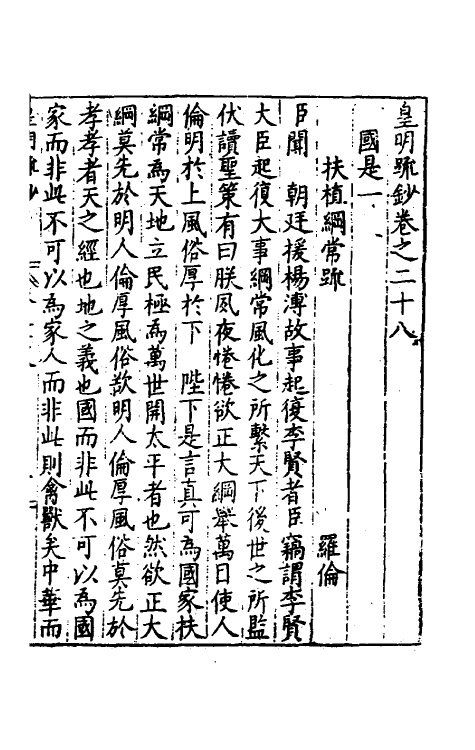 皇明疏鈔卷之二十八
國是一
扶植綱常疏 羅倫
臣聞 朝廷援楊溥故事起復李賢者臣竊謂李賢
大臣起復大事綱常風化之所繫天下後世之所監
伏讀聖策有曰朕夙夜惓惓欲正大綱舉萬目使人
倫明於上風俗厚於下 陛下是言真可為國家扶
綱常為天地立民極為萬世開太平者也然欲正大
綱莫先於明人倫厚風俗欲明人倫厚風俗莫先於
孝孝者天之經也地之義也國而非此不可以為國
家而非此不可以為家人而非此則禽獸矣中華而